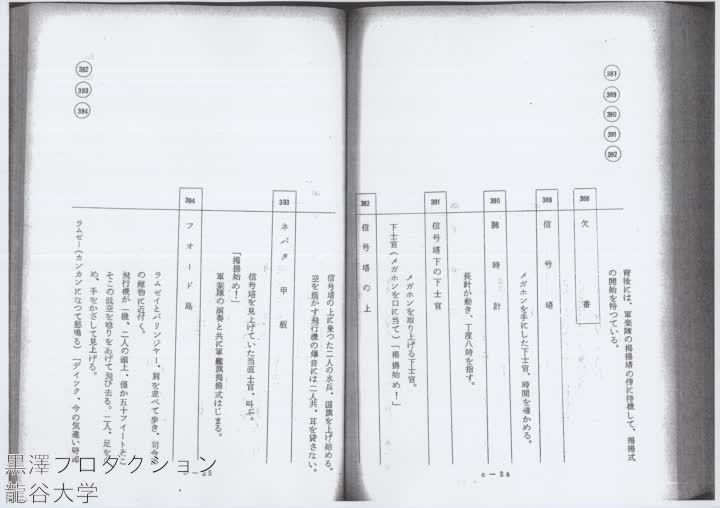 387
389
390
391
392
背後には、軍楽隊の掲揚塔の傍に待機して、掲揚式
の開始を待つている。
388 欠番
389 信号塔
メガホンを手にした下士官、時間を確かめる。
390 腕時計
長針が動き、丁度八時を指す。
391 信号塔下の下士官
メガホンを取り上げる下士官。
下士官(メガホンを口に当て)「掲揚始め!」
392 信号塔の上
信号塔の上に乗つた二人の水兵、国旗を上げ始める。
空を揺かす飛行機の爆音には二人共、耳を貸さない。
c-24
392
393
394
393 ネバタ甲板
信号塔を見上げていた当直士官、叫ぶ。
「掲揚始め!」
軍楽隊の演奏と共に軍艦旗掲揚式はじまる。
394 フオード島
ラムゼイとバリンジャー、肩を並べて歩き、司令
の建物に近付く。
飛行機が一機、二人の頭上、僅か五十フイートそこ
そこの低空を唸りをあげて飛び去る。二人、足を
め、手をかざして見上げる。
ラムゼー(カンカンになつて怒鳴る)「デイツク、今の気違い野郎
c-25
黒澤プロダクション
龍谷大学